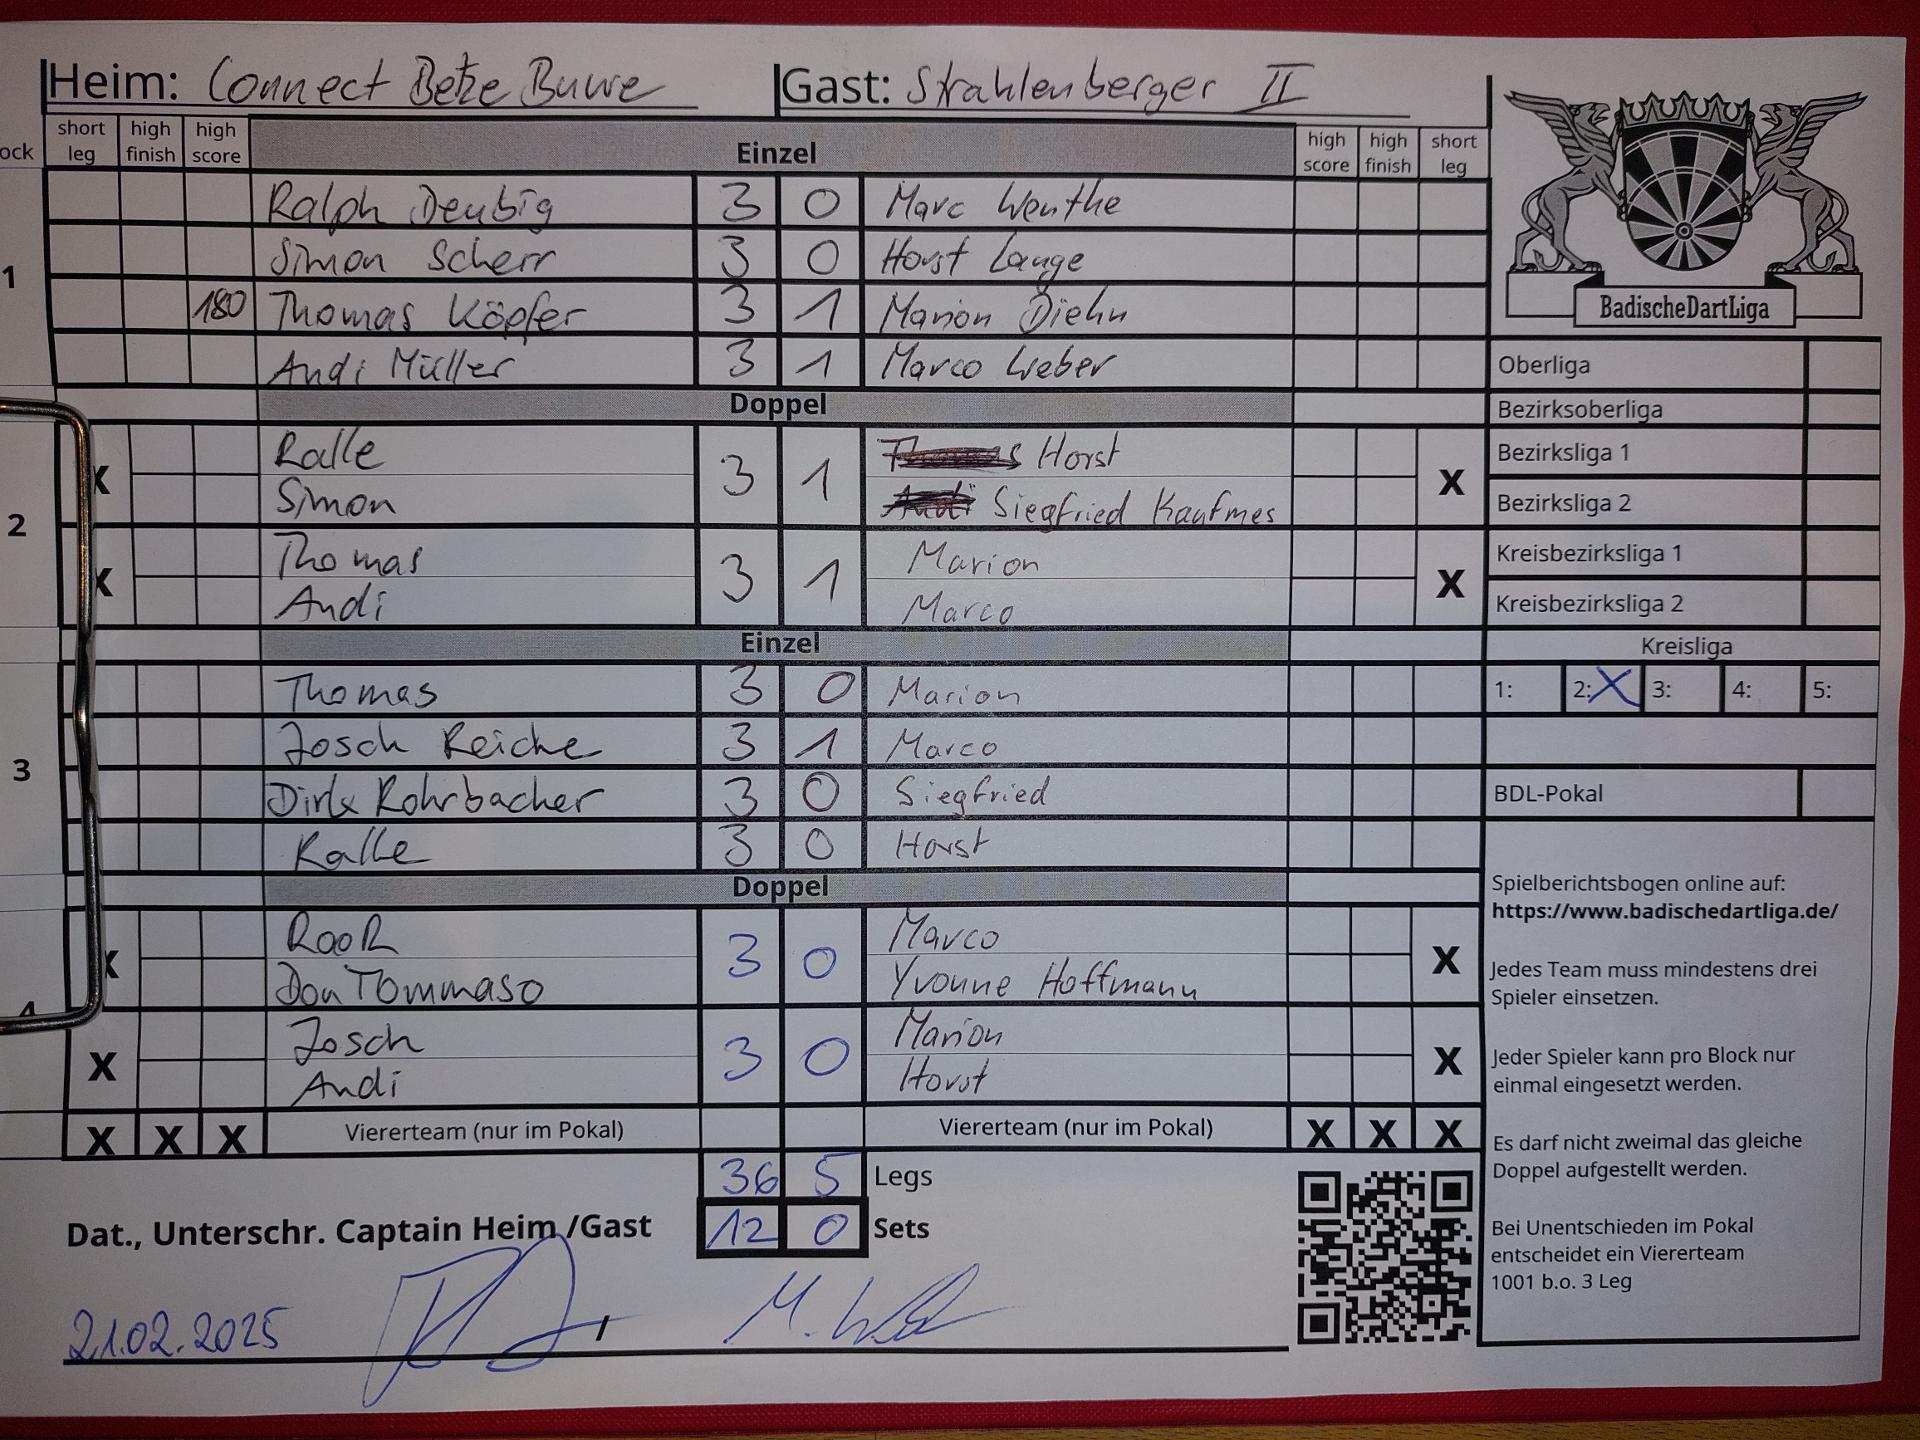 Heim: Connect Betze Buwe Gast: Strahlenberger II
ock short leg high finish high score Einzel high score high finish short leg
1
Ralph Deubig 3 0 Marc Wenthe
Simon Scherr 3 0 Horst Lange
180 Thomas Köpfer 3 1 Marion Diehn
Andi Müller 3 1 Marco Weber
Doppel
2
X Ralle 3 1 Horst X
Simon Siegfried Kaufmes
X Thomas 3 1 Marion X
Andi Marco
Einzel
3
Thomas 3 0 Marion
Josch Reiche 3 1 Marco
Dirk Rohrbacher 3 0 Siegfried
Ralle 3 0 Horst
Doppel
4
X RooR 3 0 Marco X
Don Tommaso Yvonne Hoffmann
X Josch 3 0 Marion X
Andi Horst
X X X Viererteam (nur im Pokal) Viererteam (nur im Pokal) X X X
36 5 Legs
Dat., Unterschr. Captain Heim /Gast 12 0 Sets
21.02.2025
BadischeDartLiga
Oberliga
Bezirksoberliga
Bezirksliga 1
Bezirksliga 2
Kreisbezirksliga 1
Kreisbezirksliga 2
Kreisliga
1: 2: X 3: 4: 5:
BDL-Pokal
Spielberichtsbogen online auf:
https://www.badischedartliga.de/
Jedes Team muss mindestens drei
Spieler einsetzen.
Jeder Spieler kann pro Block nur
einmal eingesetzt werden.
Es darf nicht zweimal das gleiche
Doppel aufgestellt werden.
Bei Unentschieden im Pokal
entscheidet ein Viererteam
1001 b.o. 3 Leg